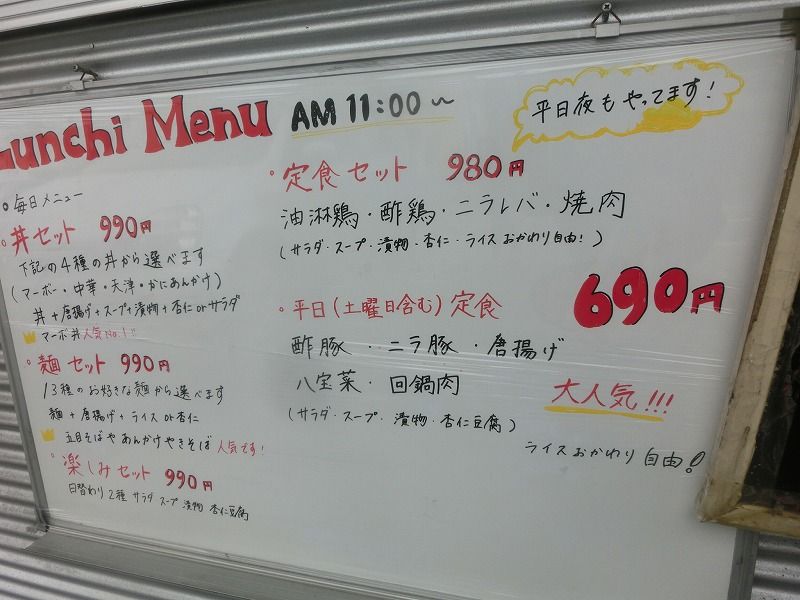 Lunchi Menu AM 11:00~
平日夜もやってます!
。毎日メニュー
・丼セット 990円
下記の4種の丼から選べます
(マーボー・中華・天津・かにあんかけ)
丼+唐揚げ+スープ+漬物+杏仁orサラダ
マーボ丼人気No.1!!
・麺セット 990円
13種のお好きな麺から選べます
麺+唐揚げ+ライスor杏仁
五目そばやあんかけやきそば人気です!
・楽しみセット 990円
日替わり2種 サラダ スープ 漬物 杏仁豆腐
・定食セット 980円
油淋鶏・酢鶏・ニラレバ・焼肉
(サラダ・スープ・漬物・杏仁・ライスおかわり自由!)
・平日(土曜日含む)定食 690円
酢豚・・ニラ豚・唐揚げ
八宝菜・回鍋肉
大人気!!!
(サラダ・スープ・漬物・杏仁豆腐)
ライスおかわり自由!